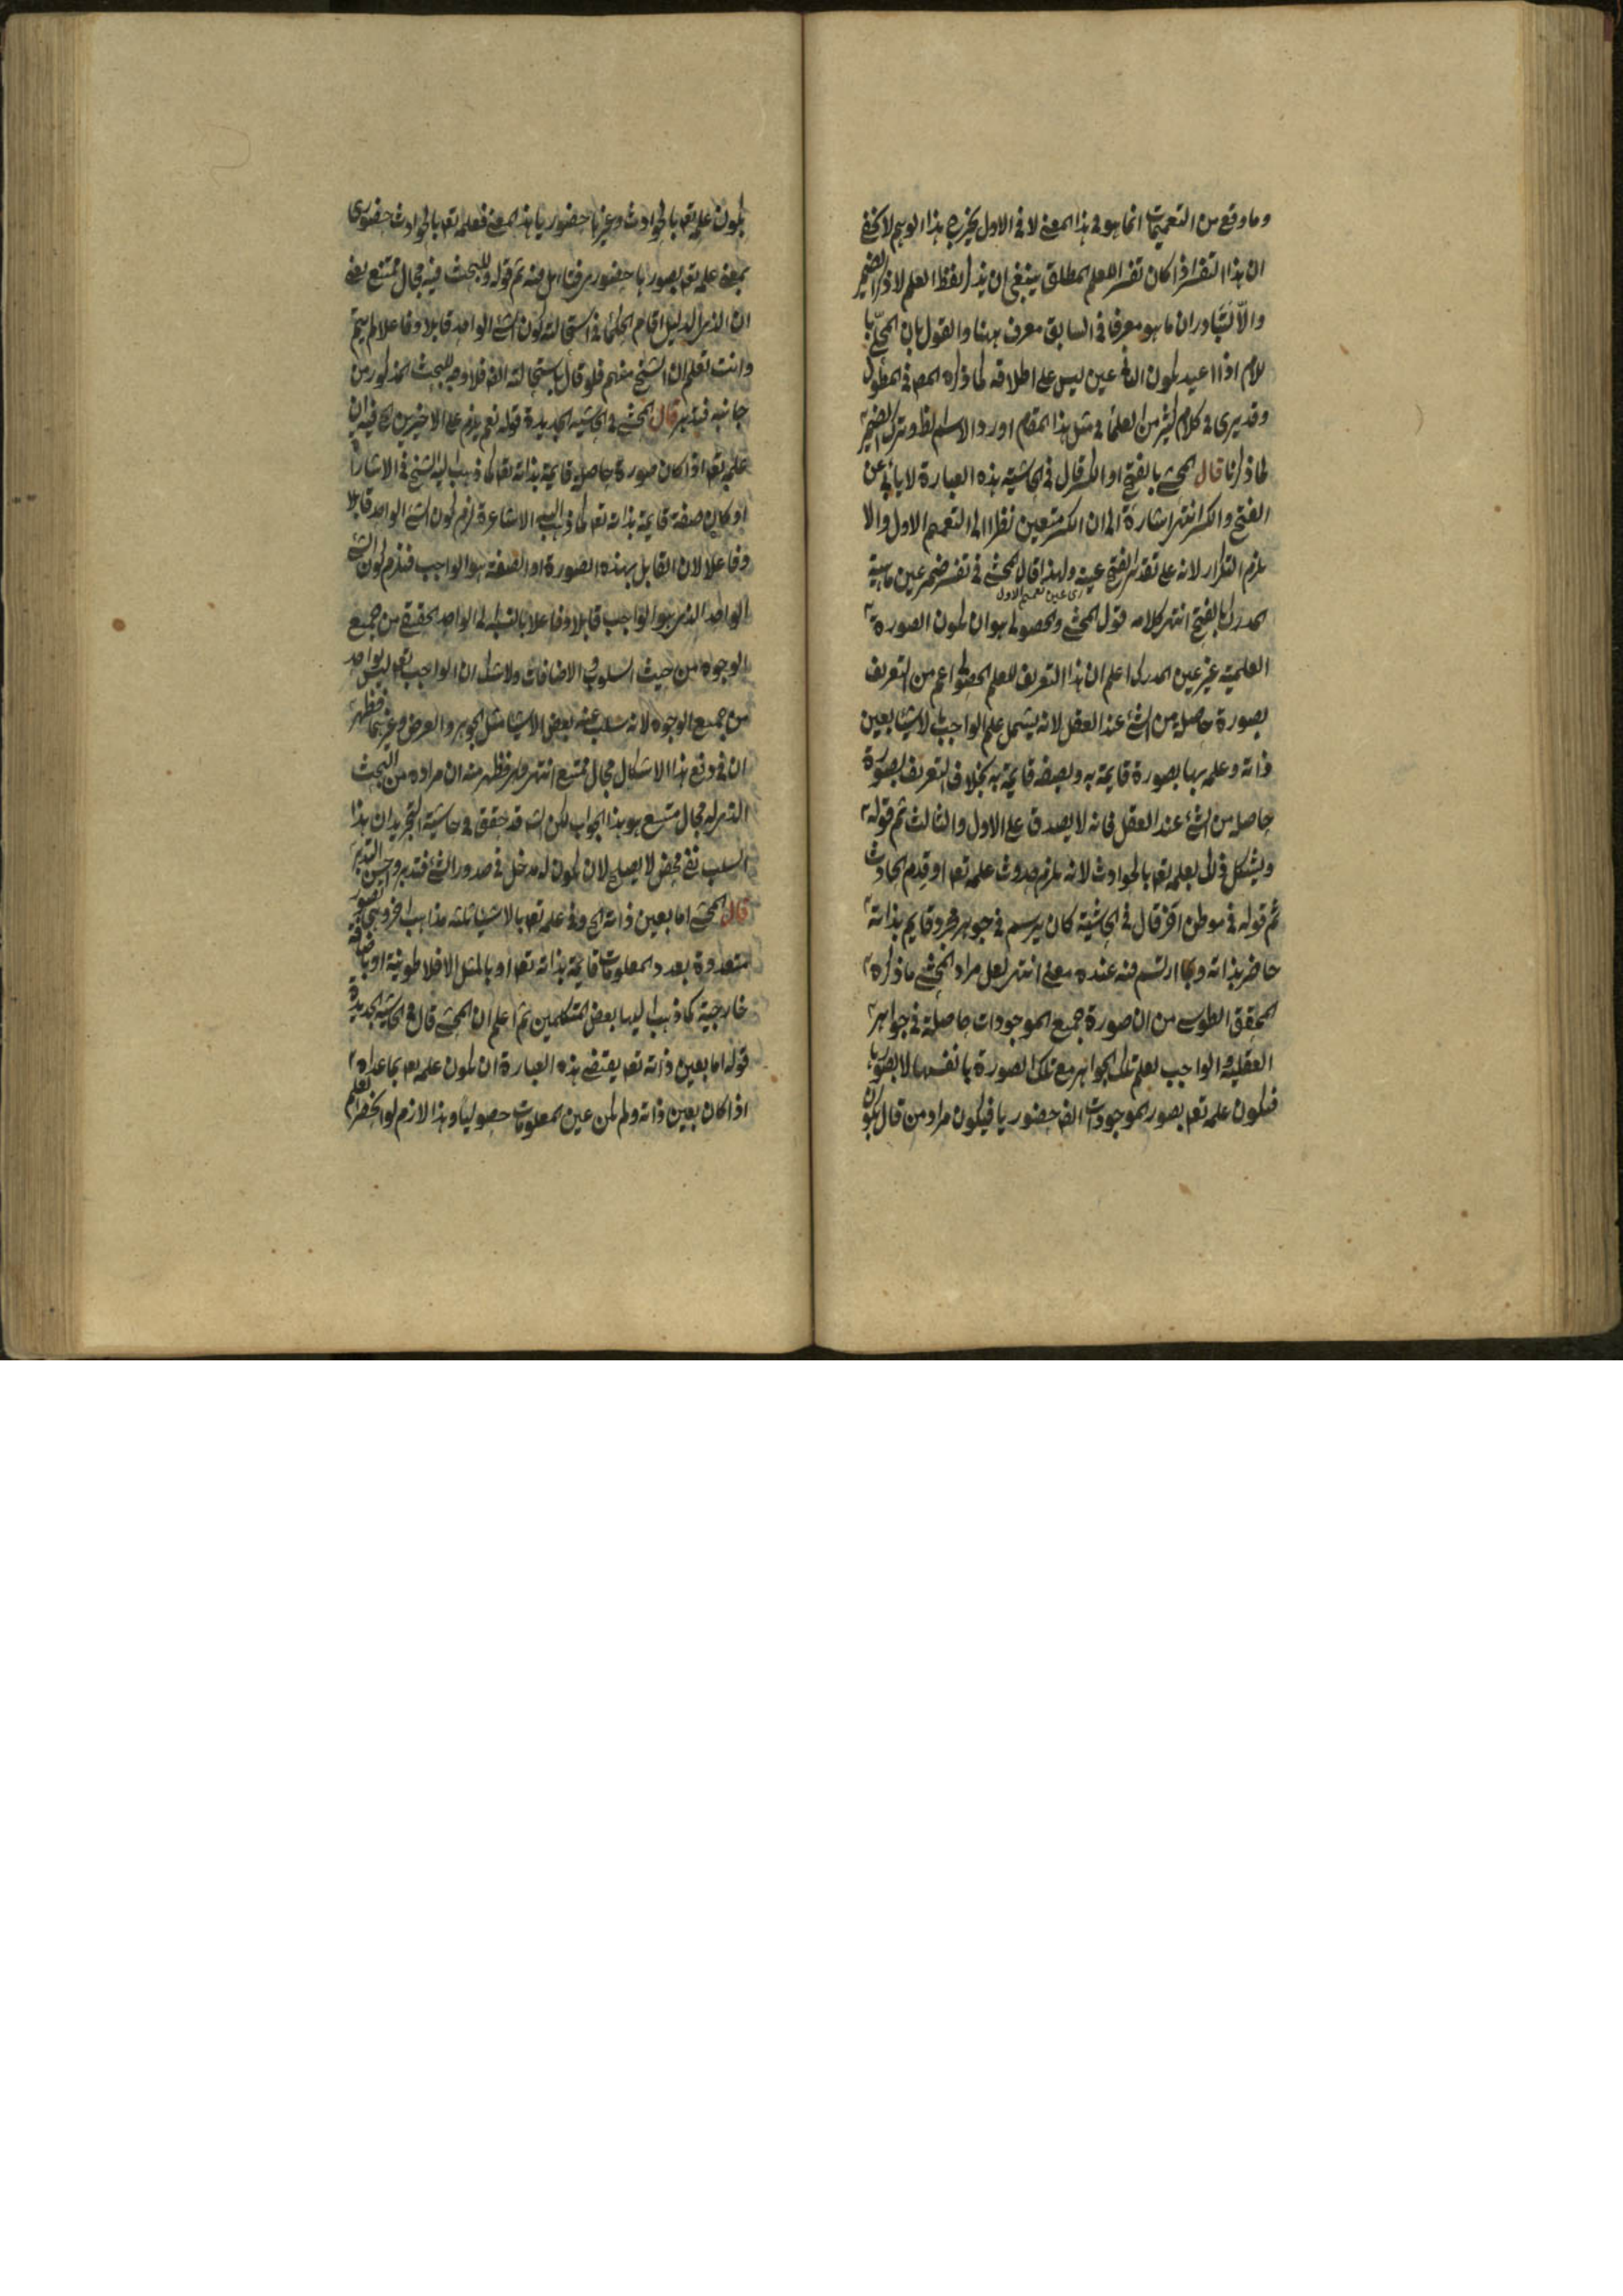 وما وقع من التعميمات انما هو فى هذا المعنى لا فى الاول يخرج هذا الوهم لا يخفى
ان هذا التفسير اذا كان تفسير العلم المطلق ينبغى ان يذكر لفظ العلم لا ذكر الضمير
والا لتبادر ان ما هو معرفا فى السابق معرف ههنا والقول بان المحلى با
للام اذا اعيد يكون الثانى عين ليس على اطلاقه كما ذكره المص فى المطول
وقد يرى فى كلام كثير من العلماء فى مثل هذا المقام اورد الاسم الظ وترك الضمير
كما ذكرنا قال المحشى بالفتح او الكسر قال فى الحاشية هذه العبارة لا يأبى عن
الفتح والكسر انتهى اشارة الى ان الكسر متعين نظرا الى التعميم الاول والا
يلزم التكرار لانه على تقدير الفتح عينه ولهذا قال المحشى فى تفسير ضمير عين ماهية
اى عين تعميم الاول
المدرك بالفتح انتهى كلامه قول المحشى والحصولى هو ان يكون الصورة
العلمية غير عين المدرك اعلم ان هذا التعريف للعلم الحصولى اعم من التعريف
بصورة حاصلة من الشئ عند العقل لانه يشمل علم الواجب بالاشياء بعين
ذاته وعلمه بها بصورة قايمة به وبصفة قايمة به بخلاف التعريف بصورة
حاصلة من الشئ عند العقل فانه لا يصدق على الاول والثالث ثم قوله
ويشكل ذلك بعلمه تعا بالحوادث لانه يلزم حدوث علمه تعا او قدم الحادث
ثم قوله فى موطن اخر قال فى الحاشية كان يرسم فى جوهر مجرد قايم بذاته
حاضر بذاته وبما ارتسم فيه عنده معنى انتهى لعل مراد المحشى ما ذكره
المحقق الطوسى من ان صورة جميع الموجودات حاصلة فى جواهر
العقلية والواجب يعلم تلك الجواهر مع تلك الصورة بانفسها لا بصور
فيكون علمه تعا بصور الموجودات ايضا حضوريا فيكون مراد من قال بكون
يكون علمه تعا بالحوادث وغيرها حضوريا هذا المعنى فعلمه تعا بالحوادث حضورى
بمعنى علمه تعا بصورها حضورى فتامل فيه ثم قوله وللبحث فيه مجال متسع يعنى
ان الذى الدليل اقام الحكماء فى استحالة كون الشئ الواحد قابلا وفاعلا لم يتم
وانت تعلم ان الشيخ منهم فلو قال باستحالته ايضا فلا وجه للبحث المذكور من
جانبه فتدبر قال المحشى فى الحاشية الجديدة قوله نعم يلزم على الاخيرين الخ فيه ان
علمه تعا اذا كان صورة حاصلة قايمة بذاته تعا كما ذهب اليه الشيخ فى الاشارات
او كان صفة قايمة بذاته تعا كما ذهب اليه الاشاعرة لزم كون الشئ الواحد قابلا
وفاعلا لان القابل بهذه الصورة او الصفة هو الواجب فلزم كون الشئ
الواحد الذى هو الواجب قابلا وفاعلا بالنسبة الى الواحد الحقيقى من جميع
الوجوه من حيث السلوب والاضافات ولا شك ان الواجب تعا ليس بواحد
من جميع الوجوه لانه سلب عنه بعض الاشياء مثل الجوهر والعرض وغيرهما فظهر
ان فى دفع هذا الاشكال مجال متسع انتهى فظهر منه ان مراده من البحث
الذى له مجال متسع هو هذا الجواب لكن انه قد حقق فى حاشية التجريد ان هذا
السلب نفى محض لا يصلح لان يكون له مدخل فى صدور الشئ فتدبر وحسن التدبر
قال المحشى اما بعين ذاته الخ وفى علمه تعا بالاشياء ثلثة مذاهب اخر وهى بصور
متعددة بعدد المعلومات قايمة بذاته تعا او بالمثل الافلاطونية او باضافة
خارجية كما ذهب اليها بعض المتكلمين ثم اعلم ان المحشى قال فى الحاشية الجديدة
قوله اما بعين ذاته تعا يقتضى هذه العبارة ان يكون علمه تعا بما عداه
اذا كان بعين ذاته ولم يكن عين المعلومات حصوليا وهذا لازم لو انحصر العلم